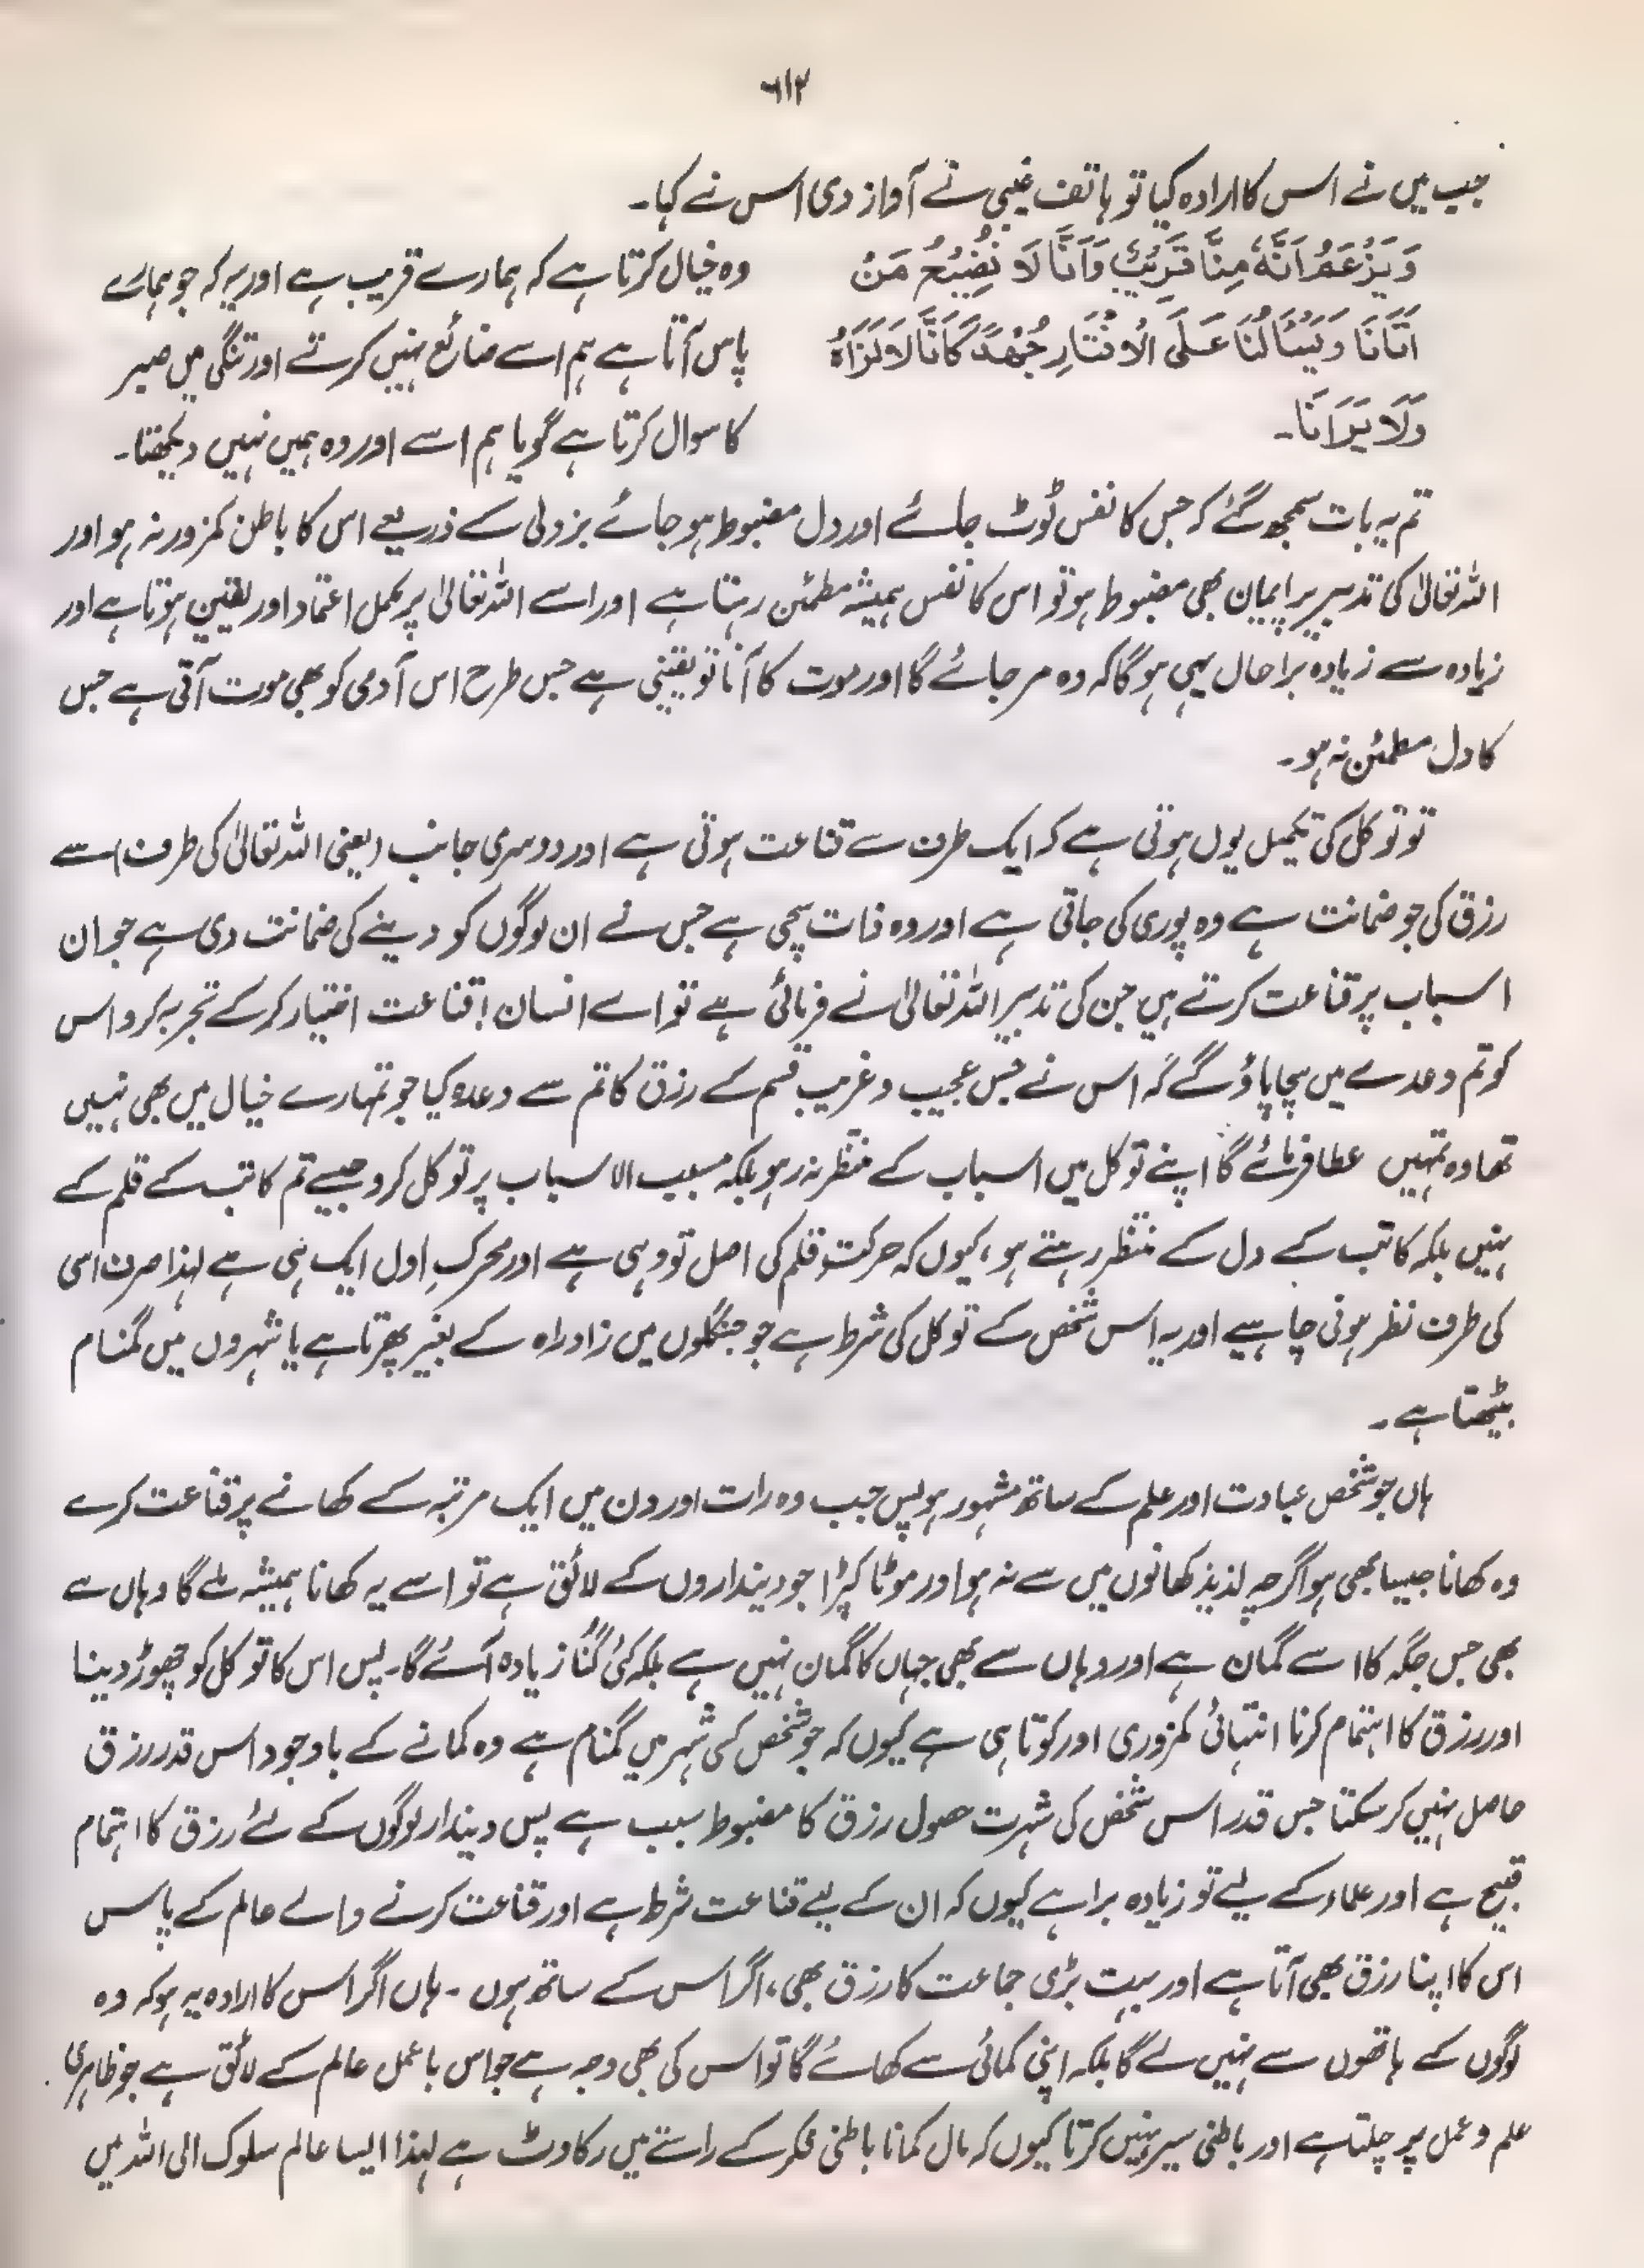 ۶۱۲
جب میں نے اس کا ارادہ کیا تو ہاتف غیبی نے آواز دی اس نے کہا۔
وَيَزْعَمُ اَنَّهٗ مِنَّا قَرِيْبٌ وَاَنَّا لَا نُضِيْعُ مَنْ
اَتَانَا وَيَسْاَلُنَا عَلَى الْاِقْتَارِ جُهْدًا كَاَنَّا لَا نَرَاهُ
وَلَا يَرَانَا۔
وہ خیال کرتا ہے کہ ہمارے قریب ہے اور یہ کہ جو ہمارے
پاس آتا ہے ہم اسے ضائع نہیں کرتے اور تنگی میں صبر
کا سوال کرتا ہے گویا ہم اسے اور وہ ہمیں نہیں دیکھتا۔
تم یہ بات سمجھ گئے کہ جس کا نفس ٹوٹ جائے اور دل مضبوط ہو جائے بزدلی کے ذریعے اس کا باطن کمزور نہ ہو اور
اللہ تعالیٰ کی تدبیر پر ایمان بھی مضبوط ہو تو اس کا نفس ہمیشہ مطمئن رہتا ہے اور اسے اللہ تعالیٰ پر مکمل اعتماد اور یقین ہوتا ہے اور
زیادہ سے زیادہ برا حال یہی ہو گا کہ وہ مر جائے گا اور موت کا آنا تو یقینی ہے جس طرح اس آدمی کو بھی موت آتی ہے جس
کا دل مطمئن نہ ہو۔
تو توکل کی تکمیل یوں ہوتی ہے کہ ایک طرف سے قناعت ہوتی ہے اور دوسری جانب (یعنی اللہ تعالیٰ کی طرف) سے
رزق کی جو ضمانت ہے وہ پوری کی جاتی ہے اور وہ ذات سچی ہے جس نے ان لوگوں کو دینے کی ضمانت دی ہے جو ان
اسباب پر قناعت کرتے ہیں جن کی تدبیر اللہ تعالیٰ نے فرمائی ہے تو اے انسان! قناعت اختیار کر کے تجربہ کرو اس
کو تم وعدے میں سچا پاؤ گے کہ اس نے جس عجیب و غریب قسم کے رزق کا تم سے وعدہ کیا جو تمہارے خیال میں بھی نہیں
تھا وہ تمہیں عطا فرمائے گا اپنے توکل میں اسباب کے منتظر نہ رہو بلکہ مسبب الاسباب پر توکل کرو جیسے تم کاتب کے قلم کے
نہیں بلکہ کاتب کے دل کے منتظر رہتے ہو، کیوں کہ حرکت قلم کی اصل تو وہی ہے اور محرکِ اول ایک ہی ہے لہذا صرف اسی
کی طرف نظر ہونی چاہیے اور یہ اس شخص کے توکل کی شرط ہے جو جنگلوں میں زاد راہ کے بغیر پھرتا ہے یا شہروں میں گمنام
بیٹھتا ہے۔
ہاں جو شخص عبادت اور علم کے ساتھ مشہور ہو پس جب وہ رات اور دن میں ایک مرتبہ کے کھانے پر قناعت کرے
وہ کھانا جیسا بھی ہو اگرچہ لذیذ کھانوں میں سے نہ ہو اور موٹا کپڑا جو دینداروں کے لائق ہے تو اسے یہ کھانا ہمیشہ ملے گا وہاں سے
بھی جس جگہ کا اسے گمان ہے اور وہاں سے بھی جہاں کا گمان نہیں ہے بلکہ کئی گنا زیادہ آئے گا۔ پس اس کا توکل کو چھوڑ دینا
اور رزق کا اہتمام کرنا انتہائی کمزوری اور کوتاہی ہے کیوں کہ جو شخص کسی شہر میں گمنام ہے وہ کمانے کے باوجود اس قدر رزق
حاصل نہیں کر سکتا جس قدر اس شخص کی شہرت حصول رزق کا مضبوط سبب ہے پس دیندار لوگوں کے لئے رزق کا اہتمام
قبیح ہے اور علماء کے لیے تو زیادہ برا ہے کیوں کہ ان کے لیے قناعت شرط ہے اور قناعت کرنے والے عالم کے پاس
اس کا اپنا رزق بھی آتا ہے اور بہت بڑی جماعت کا رزق بھی، اگر اس کے ساتھ ہوں۔ ہاں اگر اس کا ارادہ یہ ہو کہ وہ
لوگوں کے ہاتھوں سے نہیں لے گا بلکہ اپنی کمائی سے کھائے گا تو اس کی بھی وجہ ہے جو اس باعمل عالم کے لائق ہے جو ظاہری
علم و عمل پر چلتا ہے اور باطنی سیر نہیں کرتا کیوں کہ مال کمانا باطنی فکر کے راستے میں رکاوٹ ہے لہذا ایسا عالم سلوک الی اللہ میں